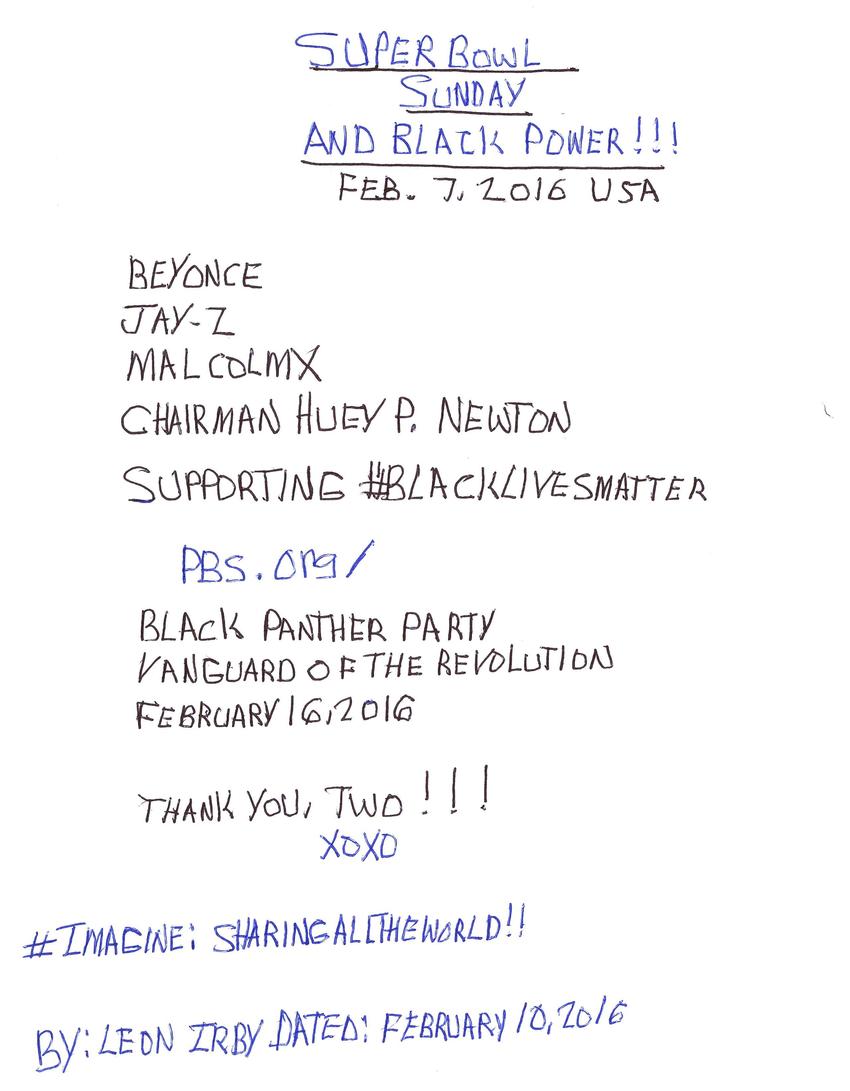 SUPER BOWL
SUNDAY
AND BLACK POWER!!!
FEB. 7, 2016 USA
BEYONCE
JAY-Z
MALCOLMX
CHAIRMAN HUEY P. NEWTON
SUPPORTING #BLACKLIVESMATTER
PBS.org/
BLACK PANTHER PARTY
VANGUARD OF THE REVOLUTION
FEBRUARY 16, 2016
THANK YOU, TWO!!!
XOXO
#IMAGINE: SHARINGALLTHEWORLD!!
BY: LEON IRBY DATED: FEBRUARY 10, 2016